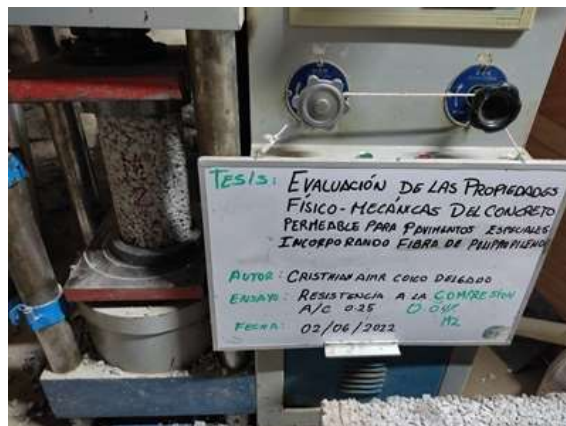 TESIS: EVALUACIÓN DE LAS PROPIEDADES
FÍSICO-MECÁNICAS DEL CONCRETO
PERMEABLE PARA PAVIMENTOS ESPECIALES
INCORPORANDO FIBRA DE POLIPROPILENO
AUTOR: CRISTHIAN AIMR COICO DELGADO
ENSAYO: RESISTENCIA A LA COMPRESION
A/C 0.25
M2
FECHA: 02/06/2022